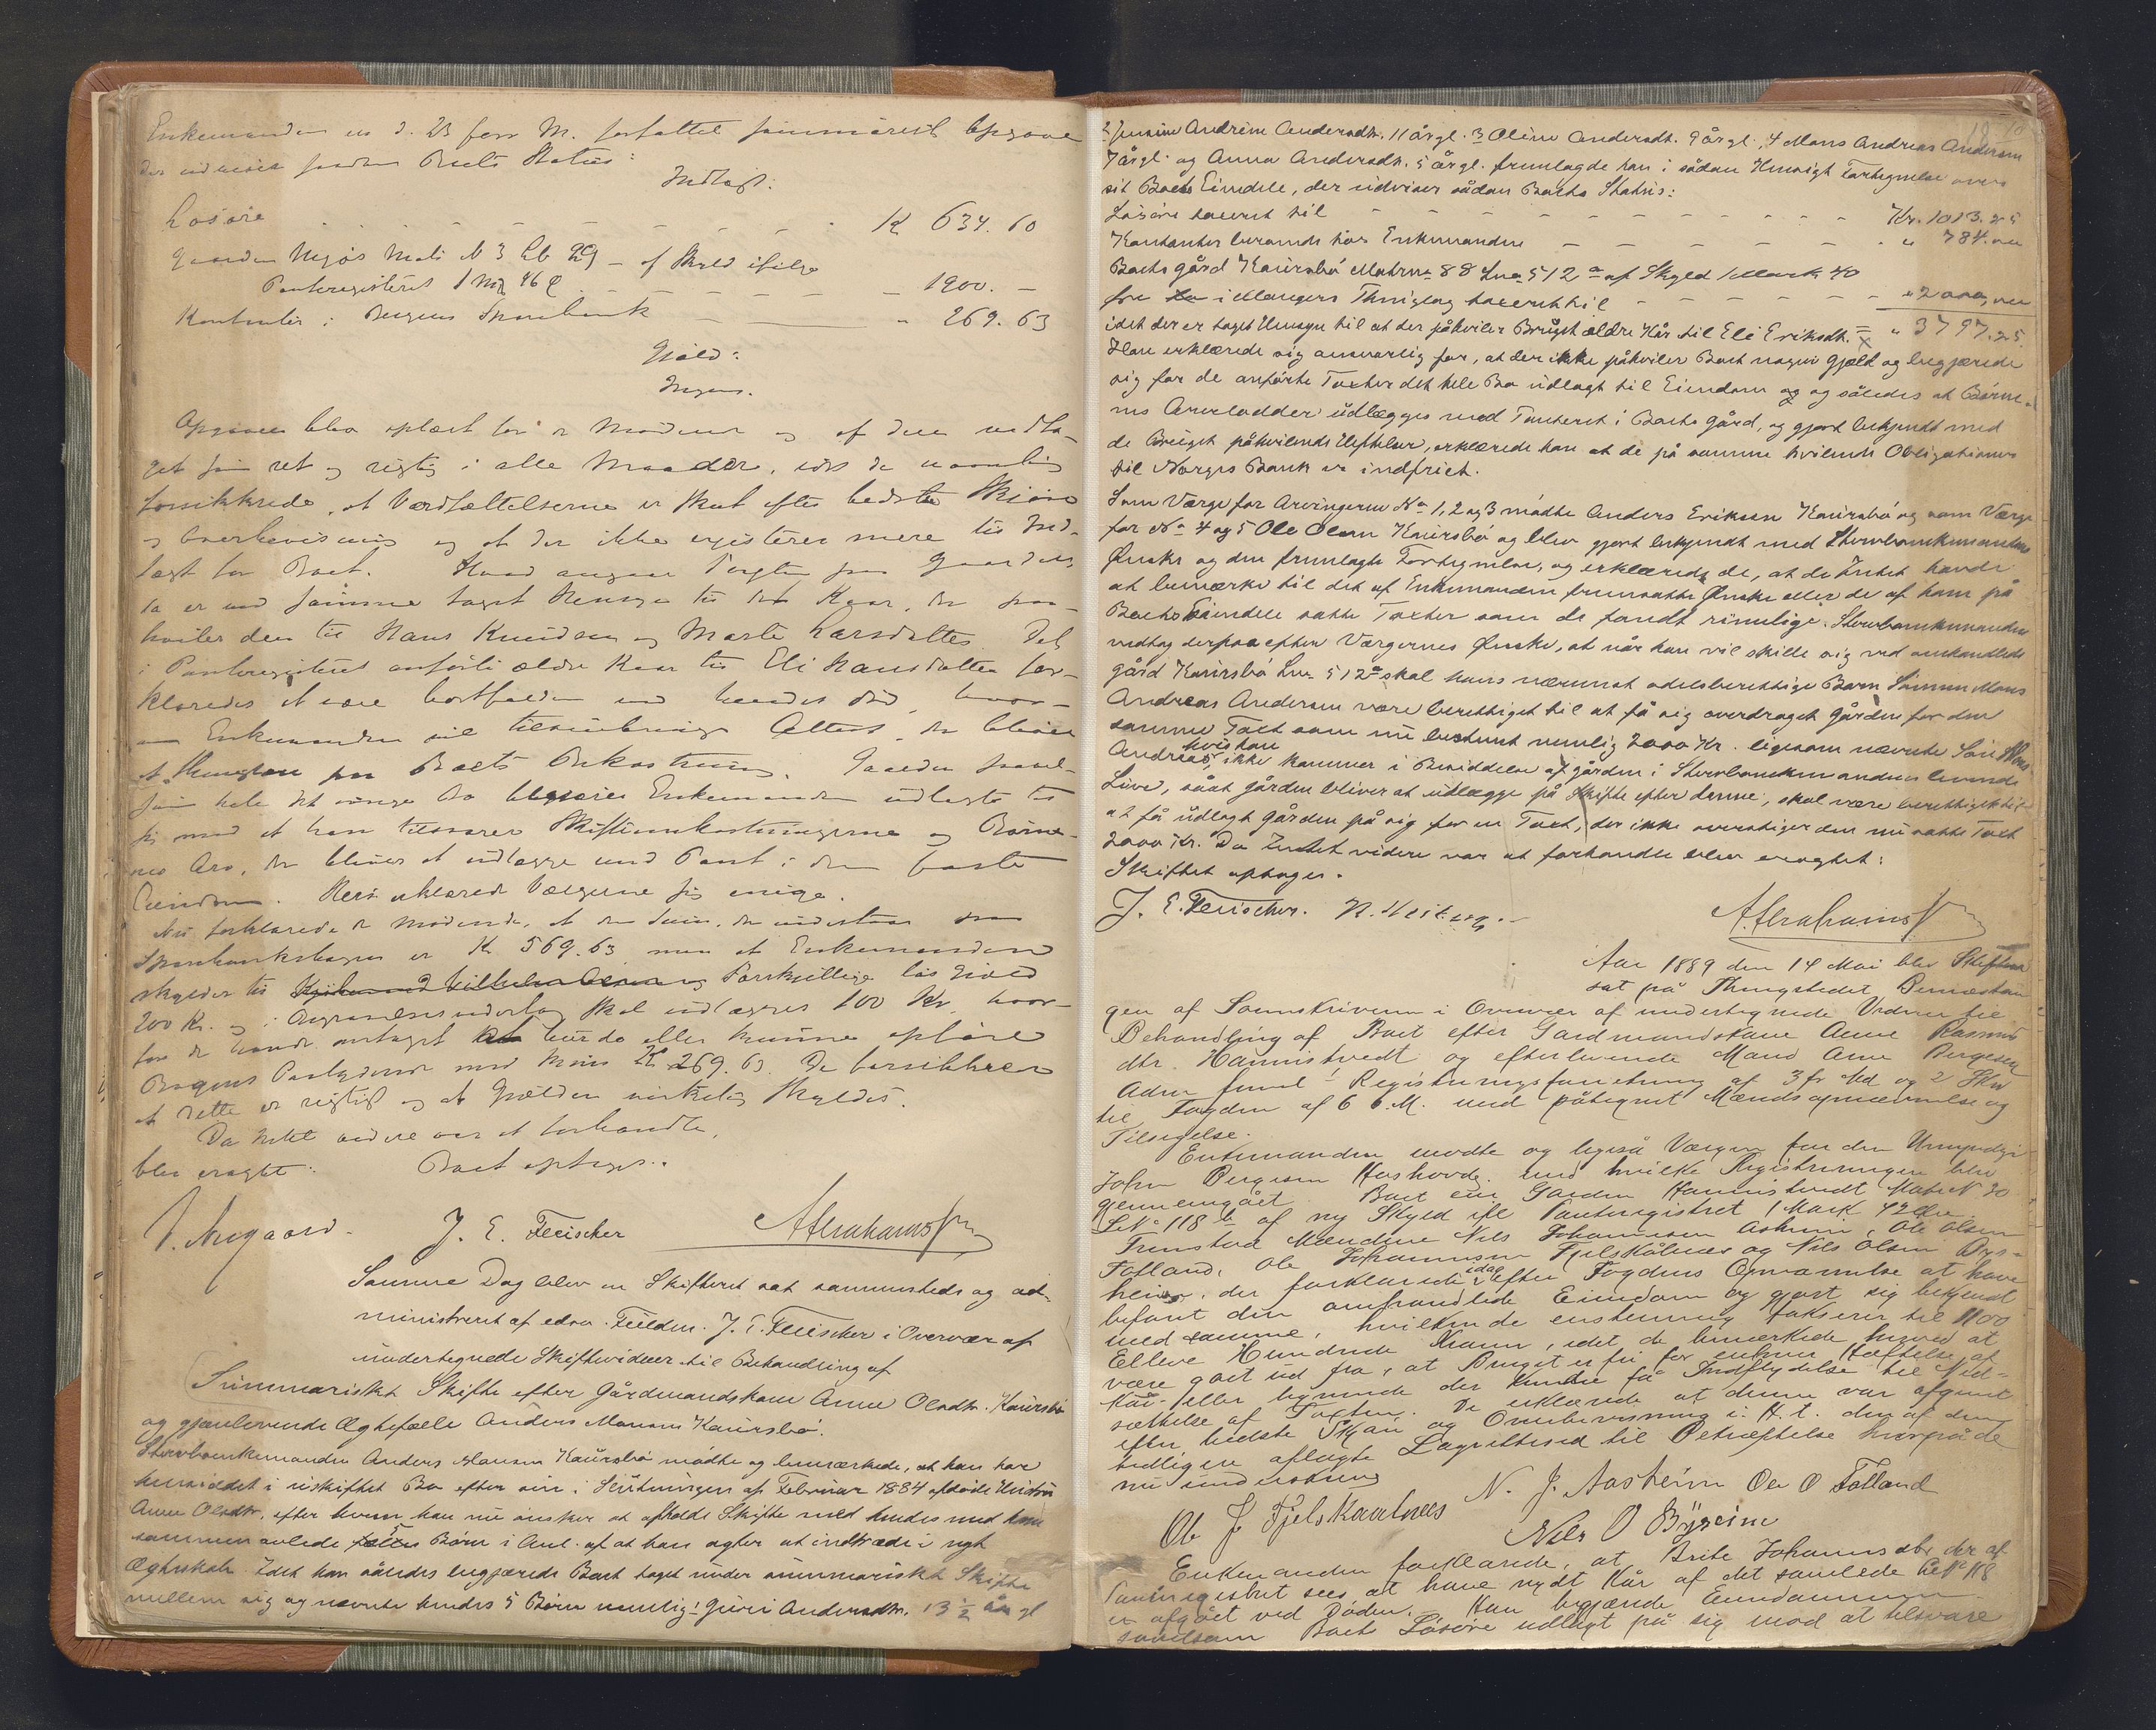 Enkemanden en d. 23 forr. M. forfattet summarisk Opgave
der udviser saadan Boets Status:
Indtægt:
Løsøre - - - - - - - K 634. 60
Gaarden Matr N 3 Lb 29 - af Skyld ifølge
Panteregisteret 1 Mrk 46 Ø - - - - - 1900. -
Kontanter i Bergens Sparebank - - " 269. 63
Gjæld:
Ingen.
Opgaven blev oplæst for de Mødende og af dem vedta-
get som ret og rigtig i alle Maader, idet de navnlig
forsikkrede, at Værdsættelserne er skeet efter bedste Skjøn
og Overbevisning og at der ikke existerer mere til Ind-
tægt for Boet. Hvad angaar Taxten paa Gaarden
da er ved samme taget Hensyn til det Kaar, der paa-
hviler den til Hans Knudsen og Marte Larsdatter. Det
i Panteregisteret anførte ældre Kaar til Eli Hansdatter for-
klaredes at være bortfalden ved hendes Død, hvor-
om Enkemanden vil tilveiebringe Attest, der bliver
at thinglæse paa Boets Bekostning. Gaarden saavel-
som hele det øvrige Bo begjærer Enkemanden udlagte til
sig mod at han tilsvarer Skifteomkostningerne og Børne-
nes Arv, der bliver at udlægge med Pant i den faste
Eiendom. Heri erklærede Værgerne sig enige.
Nu forklarede de Mødende, at den Sum, der indestaar paa
Sparebanksbogen er Kr 569.63 men at Enkemanden
skylder til forskjellige løs Gjæld
200 Kr. og i skal udlægges 100 Kr, hvor-
for de havde antaget at burde eller kunne opføre
Bogens Paalydende med Kun Kr 269. 63. De forsikkrer
at dette er rigtigt og at Gjælden virkelig skyldes.
Da Intet videre var at forhandle,
blev eragtet: Boet optages.
J. E. Fleischer Abrahamsen
Samme Dag blev en Skifteret sat sammesteds og ad-
ministreret af edsv. Fuldm. J. E. Fleischer i Overvær af
undertegnede Skiftevidner til Behandling af
Summariskt Skifte efter Gårdmandskone Anne Olsdtr. Kaursbø
og gjenlevende Ægtefælle Anders Monsen Kaursbø.
Stervboenkemanden Anders Monsen Kaursbø mødte og bemærkede, at han har
hensiddet i uskiftet Bo efter sin i Slutningen af Februar 1884 afdøde Hustru
Anne Olsdtr, efter hvem han nu ønsker at afholde Skifte med hendes med ham
sammen avlede 5 Børn i Anl. af at han agter at indtræde i nyt
Ægteskab. Idet han således begjærede Boet taget under summariskt Skifte
mellem sig og nævnte hendes 5 Børn nemlig: 1 Guri Andersdtr. 13 1/2 år gl
2 Andrine Andersdtr. 11 år gl. 3 Oline Andersdt. 9 år gl., 4 Mons Andreas Andersen
7 år gl. og Anna Andersdtr. 5 år gl. fremlagde han i sådan Hensigt Fortegnelse over
sit Boets Eiendele, der udviser sådan Boets Status:
Løsøre taxeret til - - - - - - Kr. 1013.25
Kontanter beroende hos Enkemanden - - - - " 784.00
Boets gård Kaursbø Matrno 88 Lno 512 a af Skyld 1 Mark 40
Øre i Manger Thinglag taxeret til - - - - " 2000,00
idet der er taget Hensyn til at der påhviler Bruget ældre Kår til Eli Eriksdt. = " 3797.25.
Han erklærede sig ansvarlig for, at der ikke påhviler Boet nogen Gjæld og begjærede
sig for de anførte Taxter det hele Bo udlagt til Eiendom og således at Børne-
nes Arvelodder udlægges med Panteret i Boets gård, og gjort bekjendt med
de Bruget påhvilende Heftelser, erklærede han at de på samme hvilende Obligationer
til Norges Bank er indfriet.
Som Værge for Arvingerne No 1, 2 og 3 mødte Anders Eriksen Kaursbø og som Værge
for No 4 og 5 Ole Olsen Kaursbø og blev gjort bekjendt med Stervboenkemandens
Ønske og den fremlagte Fortegnelse, og erklærede de, at de Intet havde
at bemærke til det af Enkemanden fremsatte Ønske eller de af ham på
Boets Eiendele satte Taxter som de fandt rimelige. Stervboenkemanden
vedtog derpaa efter Værgernes Ønske, at når han vil skille sig ved omhandlede
gård Kaursbø Lno 512 a skal hans nærmest odelsberettige Barn Sønnen Mons
Andreas Andersen være berettiget til at få sig overdraget gården for den
samme Taxt som nu bestemt nemlig 2000 Kr. ligesom nævnte Søn Mons
Andreas, hvis han ikke kommer i Besiddelse af gården i Stervboenkemandens levende
Live, såat gården bliver at udlægge på Skifte efter denne, skal være berettiget til
at få udlagt gården på sig for en Taxt, der ikke overstiger den nu satte Taxt
2000 Kr. Da Intet videre var at forhandle blev eragtet:
Skiftet optages.
J. E. Fleischer. Abrahamsen
Aar 1889 den 14 Mai blev Skifteret
sat på Thingstedet
gen af Sorenskriveren i Overvær af undertegnede Vidner til
Behandling af Boet efter Gaardmandskone Anne Rasmus
dtr. Hannistvedt og efterlevende Mand Arne Bergesen
Adm freml: Registreringsforretning af 3 fr Md og 2 Skr
til Fogden af 6 d. M. med påtegnet Mændsopnævnelse og
Tilsigelse.
Enkemanden mødte og ligeså Værgen for den Umyndige
John Bergesen med hvilke Registreringen blev
gennemgået. Boet eier Gaarden Hannistvedt Matr N 30
LNo 118 b af ny Skyld ifl Panteregistret 1 Mark 42 Øre.
Fremstod Mændene Nils Johannesen Åsheim, Ole Olsen
Fotland, Ole Johannesen Fjelskålnæs og Nils Olsen Bys-
heim, der forklarede idag efter Fogdens Opnævnelse at have
befaret den omhandlede Eiendom og gjort sig bekjendt
med samme, hvilken de enstemmig takserer til 1100
Elleve Hundrede Kroner, idet de bemærkede herved at
være gået ud fra, at Bruget er fri for enhver Heftelse af
Kår eller lignende der kunde få Indflydelse til Ned-
sættelse af Taxten. De erklærede at denne var afgivet
efter bedste Skjøn og Overbevisning i H. t. den af dem
tidligere aflagte Lagrettesed til Bekræftelse hvorpå de
nu underskrive
N. J. Aasheim Ole O Fotland
Ole J Fjelskaalnes Nils O Byseim
Enkemanden forklarede, at Brite Johannesdtr der af
Panteregistret sees at have nydt Kår af det samlede LNo 118
er afgået ved Døden. Han begjærede Eiendommen
saavelsom Boets Løsøre udlagt på sig mod at tilsvare